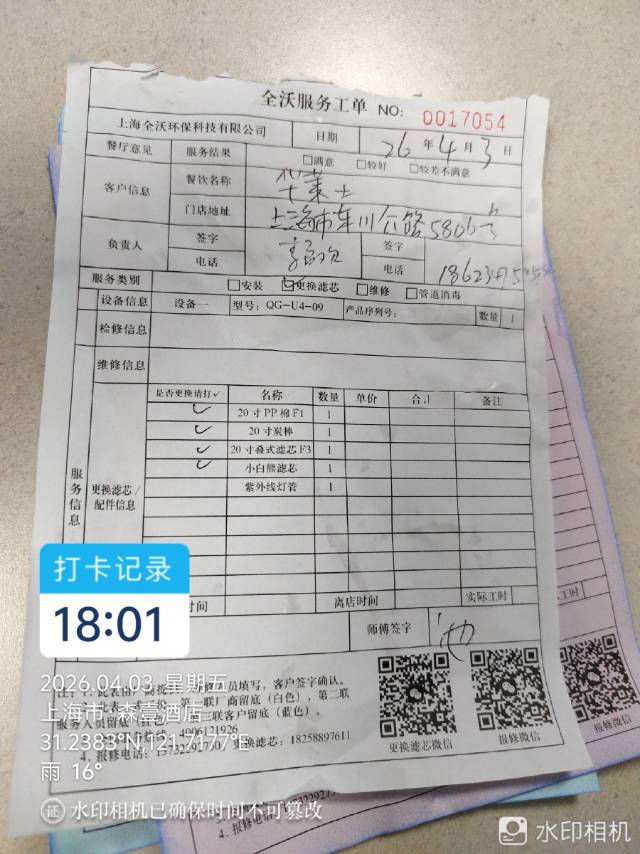 全沃服务工单 NO: 0017054
上海全沃环保科技有限公司 日期 26 年 4 月 3 日
餐厅意见 服务结果 □满意 □较好 □较差不满意
客户信息 餐饮名称 华莱士
门店地址 上海市车川公路5806号
负责人 签字 签字
电话 电话
服务类别 □安装 ☑更换滤芯 □维修 □管道消毒
设备信息 设备一 型号: QG-U4-09 产品序列号: 数量 1
检修信息
维修信息
服务信息
更换滤芯/配件信息
是否更换请打✓ 名称 数量 单价 合计 备注
✓ 20寸PP棉F1 1
✓ 20寸炭棒 1
✓ 20寸叠式滤芯F3 1
✓ 小白熊滤芯 1
紫外线灯管 1
时间 离店时间 实际工时
师傅签字
打卡记录
18:01
2026.04.03 星期五
上海市·森蒿酒店
31.2383°N,121.7177°E
雨 16°
员填写，客户签字确认。
一联厂商留底（白色），第二联
服务人员留底
三联客户留底（蓝色）。
4006121926
4. 报修电话: 更换滤芯: 18258897611
更换滤芯微信 报修微信
报修微信
工时
4. 报修电话
证 水印相机已确保时间不可篡改
水印相机